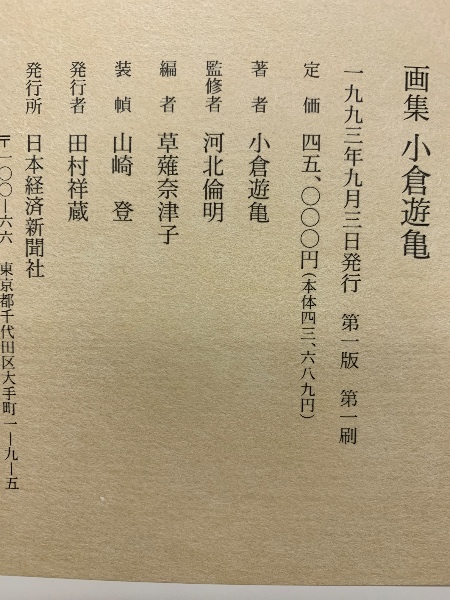 画集 小倉遊亀
一九九三年九月三日発行 第一版 第一刷
定価 四五、〇〇〇円(本体四三、六八九円)
著者 小倉遊亀
監修者 河北倫明
編者 草薙奈津子
装幀 山崎登
発行者 田村祥蔵
発行所 日本経済新聞社
〒一〇〇―六六 東京都千代田区大手町一―九―五